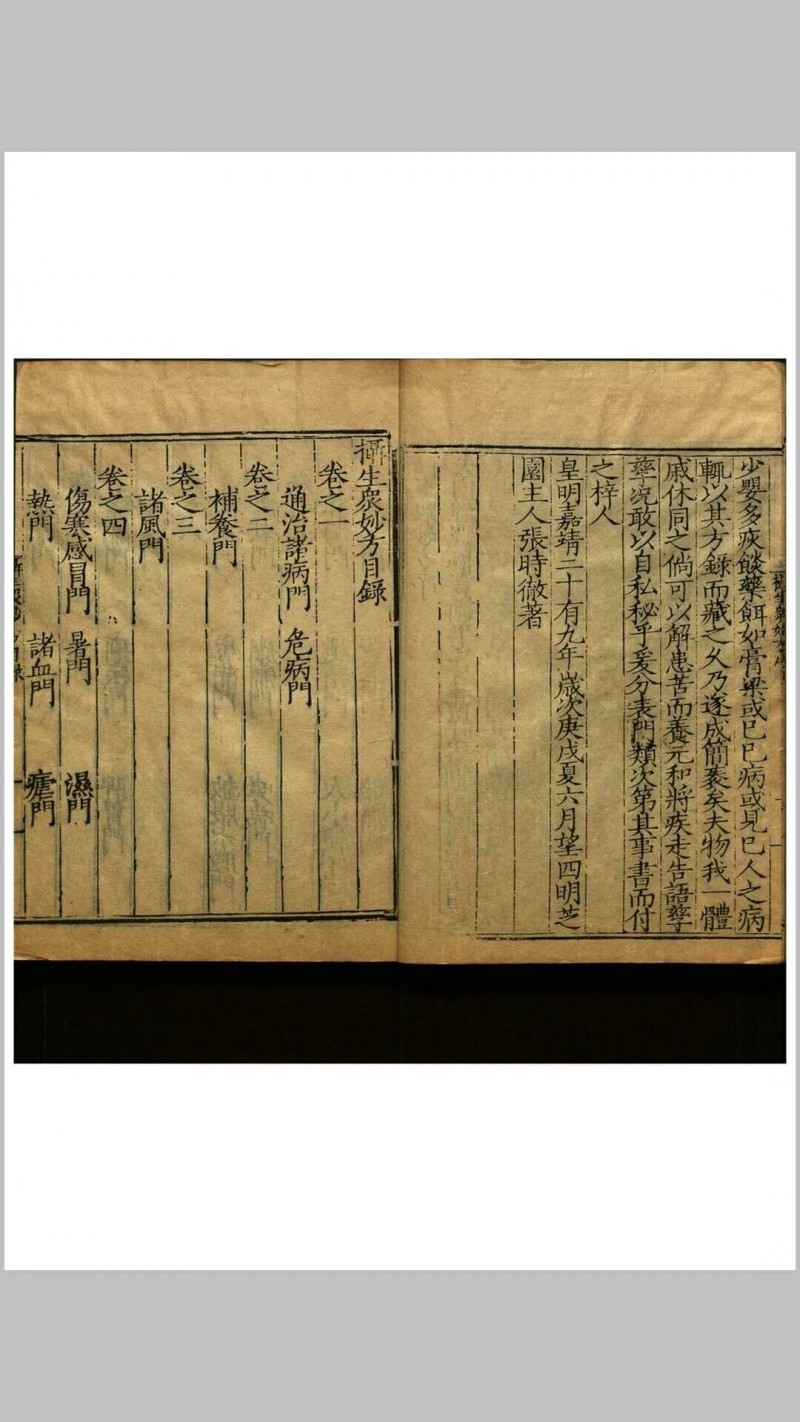 少嬰多疾餤藥餌如膏粱或已巳病或見巳人之病
輒以其方錄而藏之久乃遂成簡袠矣夫物我一體
戚休同之倘可以解患苦而養元和將疾走告語孳
孳況敢以自私秘乎爰分表門類次第其事書而付
之梓人
皇明嘉靖二十有九年歲次庚戌夏六月望四明芝
園主人張時徹著
攝生眾妙方目錄
卷之一
通治諸病門 危病門
卷之二
補養門
卷之三
諸風門
卷之四
傷寒感冒門 暑門 濕門
熱門 諸血門 瘧門